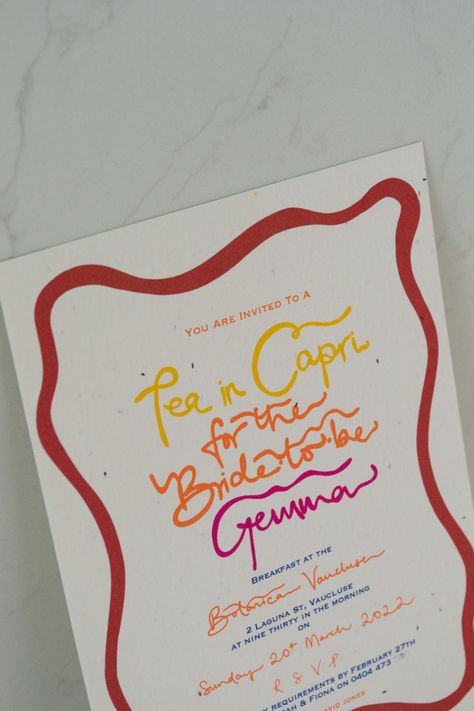 YOU ARE INVITED TO A
Tea in Capri
for the
Bride·to·be
Gemma
BREAKFAST AT THE
Botanica Vaucluse
2 LAGUNA ST, VAUCLUSE
AT NINE THIRTY IN THE MORNING
ON
Sunday 20th March 2022
R S V P
REQUIREMENTS BY FEBRUARY 27TH
& FIONA ON 0404 473
JONES